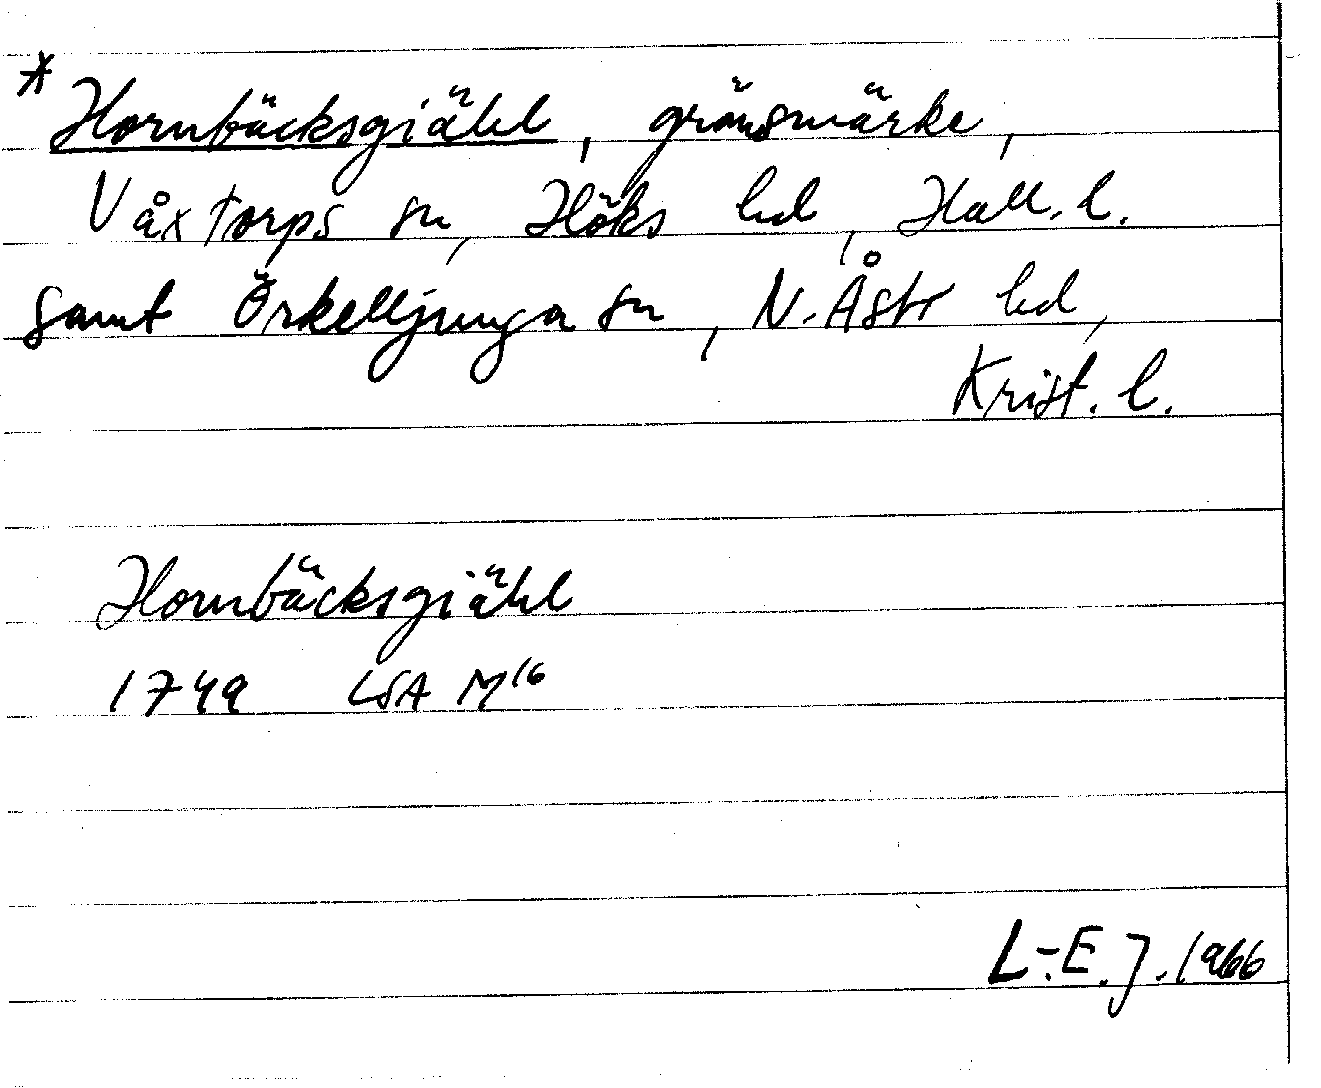 * Hornbäcksgiähl, gränsmärke,
Våxtorps sn, Höks hd, Hall. l.
samt Örkelljunga sn, N. Åsb hd,
Krist. l.
Hornbäcksgiähl
1749 LSA M16
L.-E. J. 1966